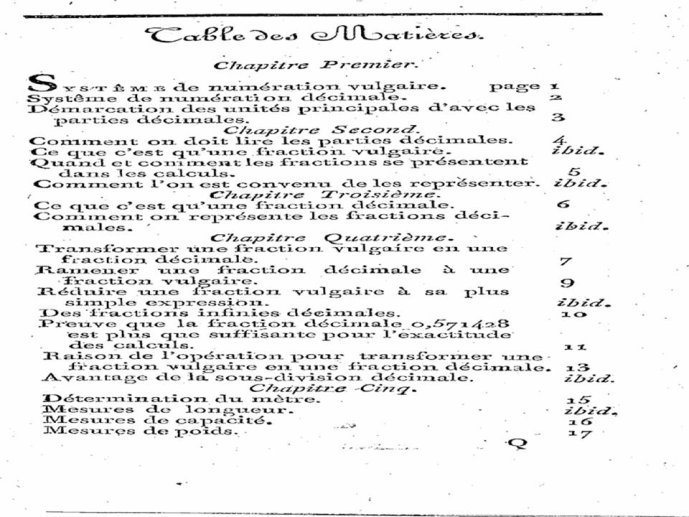 Table des Matières.
Chapitre Premier.
SYSTÊME de numération vulgaire. page 1
Système de numération décimale. 2
Démarcation des unités principales d'avec les
parties décimales. 3
Chapitre Second.
Comment on doit lire les parties décimales. 4
Ce que c'est qu'une fraction vulgaire. ibid.
Quand et comment les fractions se présentent
dans les calculs. 5
Comment l'on est convenu de les représenter. ibid.
Chapitre Troisième.
Ce que c'est qu'une fraction décimale. 6
Comment on représente les fractions déci-
males. ibid.
Chapitre Quatrième.
Transformer une fraction vulgaire en une
fraction décimale. 7
Ramener une fraction décimale à une
fraction vulgaire. 9
Réduire une fraction vulgaire à sa plus
simple expression. ibid.
Des fractions infinies décimales. 10
Preuve que la fraction décimale 0,571428
est plus que suffisante pour l'exactitude
des calculs. 11
Raison de l'opération pour transformer une
fraction vulgaire en une fraction décimale. 13
Avantage de la sous-division décimale. ibid.
Chapitre Cinq.
Détermination du mètre. 15
Mesures de longueur. ibid.
Mesures de capacité. 16
Mesures de poids. 17
Q